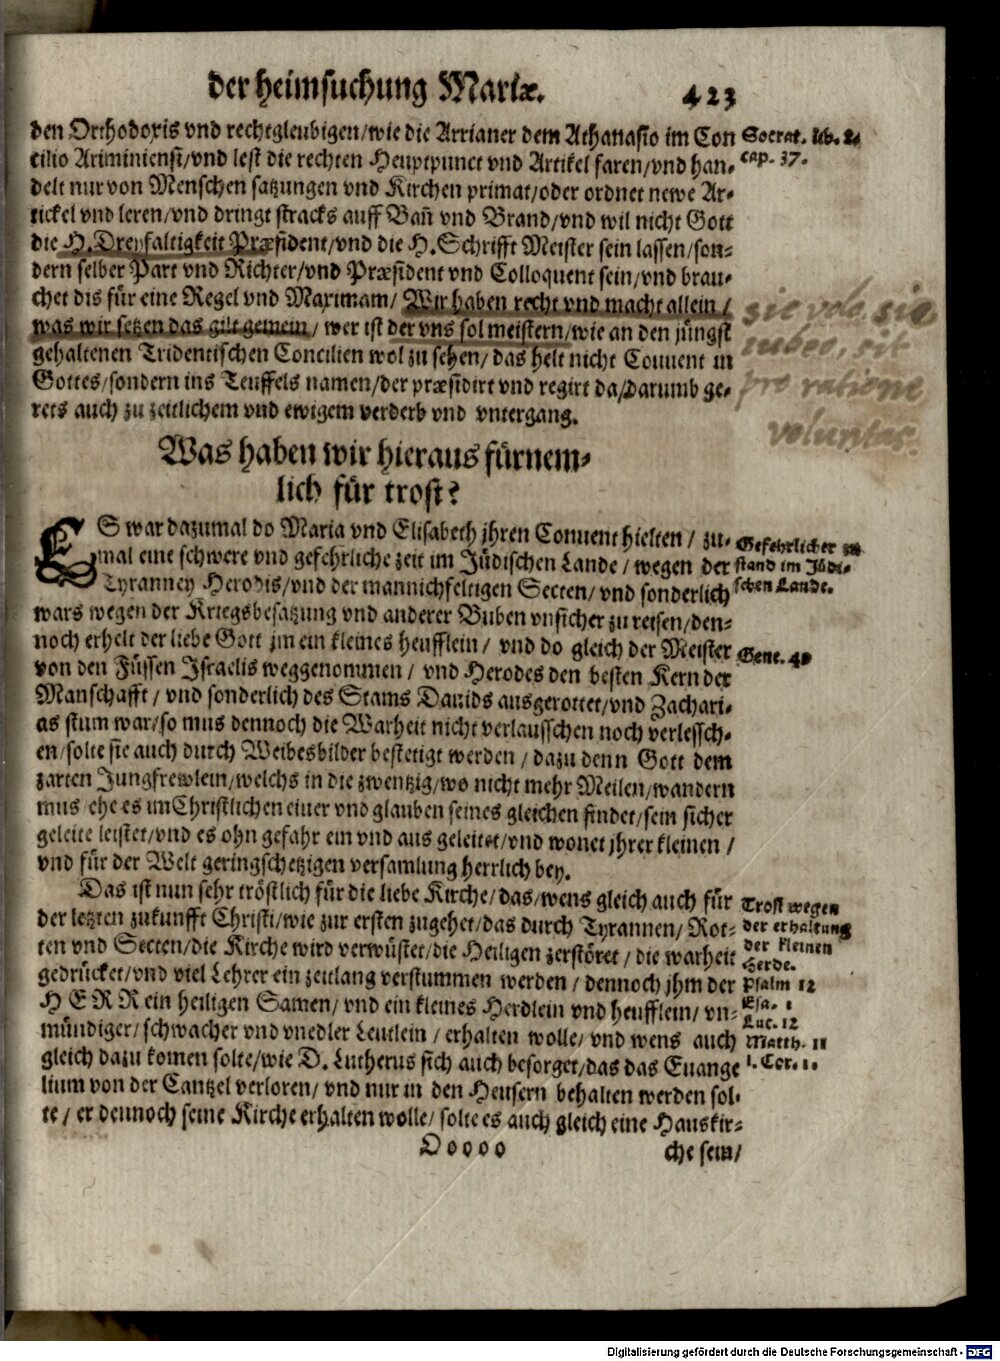 der heimsuchung Mariæ. 423
den Orthodoxis vnd rechtgleubigen/wie die Arrianer dem Athanasio im Con
cilio Ariminiensi/vnd lest die rechten Heuptpunct vnd Artikel faren/vnd han-
delt nur von Menschen satzungen vnd Kirchen primat/oder ordnet newe Ar-
tickel vnd leren/vnd dringt stracks auff Bañ vnd Brand/vnd wil nicht Gott
die H. Dreyfaltigkeit Præsident/vnd die H. Schrifft Meister sein lassen/son-
dern selber Part vnd Richter/vnd Præsident vnd Colloquent sein/vnd brau-
chet dis für eine Regel vnd Maximam/ Wir haben recht vnd macht allein/
was wir setzen das gilt gemein/ wer ist der vns sol meistern/wie an den jüngst
gehaltenen Tridentischen Concilien wol zu sehen/das helt nicht Conuent in
Gottes/sondern ins Teuffels namen/der præsidirt vnd regirt da/Darumb ge-
rets auch zu zeitlichem vnd ewigem verderb vnd vntergang.
Socrat. lib. 2.
cap. 37.
sic volo, sic
iubeo, sit
pro ratione
voluntas.
Was haben wir hieraus fürnem-
lich für trost?
ES war dazumal do Maria vnd Elisabeth jhren Conuent hielten/ zu-
mal eine schwere vnd gefehrliche zeit im Jüdischen Lande/ wegen der
Tyranney Herodis/vnd der mannichfeltigen Secten/ vnd sonderlich
wars wegen der Kriegsbesatzung vnd anderer Buben vnsicher zu reisen/den-
noch erhelt der liebe Gott jm ein kleines heufflein/ vnd do gleich der Meister
von den Füssen Israelis weggenommen/ vnd Herodes den besten Kern der
Manschafft/ vnd sonderlich des Stams Dauids ausgerottet/vnd Zachari-
as stum war/so mus dennoch die Warheit nicht verlausschen noch verlessch-
en/solte sie auch durch Weibesbilder bestetigt werden/ dazu denn Gott dem
zarten Jungfrewlein/welchs in die zwentzig/wo nicht mehr Meilen/wandern
mus/ehe es im Christlichen eiuer vnd glauben seines gleichen findet/sein sicher
geleite leistet/vnd es ohn gefahr ein vnd aus geleitet/vnd wonet jhrer kleinen/
vnd für der Welt geringschetzigen versamlung herrlich bey.
Gefehrlicher zu
stand im Jüdi-
schen Lande.
Gene. 49
Das ist nun sehr tröstlich für die liebe Kirche/das/wens gleich auch für
der letzten zukunfft Christi/wie zur ersten zugehet/das durch Tyrannen/ Rot-
ten vnd Secten/die Kirche wird verwüstet/die Heiligen zerstöret/ die warheit
gedrücket/vnd viel Lehrer ein zeitlang verstummen werden/ dennoch jhm der
HERR ein heiligen Samen/ vnd ein kleines Herdlein vnd heufflein/ vn-
mündiger/schwacher vnd vnedler Leutlein/ erhalten wolle/ vnd wens auch
gleich dazu komen solte/wie D. Lutherus sich auch besorget/das das Euange
lium von der Cantzel verloren/ vnd nur in den Heusern behalten werden sol-
te/ er dennoch seine Kirche erhalten wolle/ solte es auch gleich eine Hauskir-
Trost wegen
der erhaltung
der kleinen
Herde.
Psalm 12
Esa. 1
Luc. 12
Matth. 11
1. Cor. 1.
Ooooo
che sein/
Digitalisierung gefördert durch die Deutsche Forschungsgemeinschaft - DFG